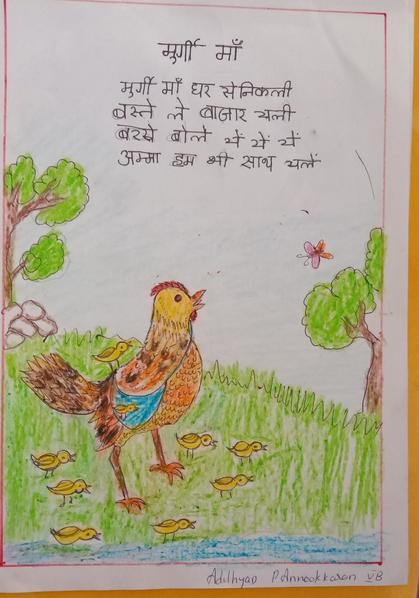 मुर्गी माँ
मुर्गी माँ घर से निकली
बस्ते ले बाज़ार चली
बच्चे बोले चें चें चें
अम्मा हम भी साथ चलें
Adithyan P Annookkaran VB